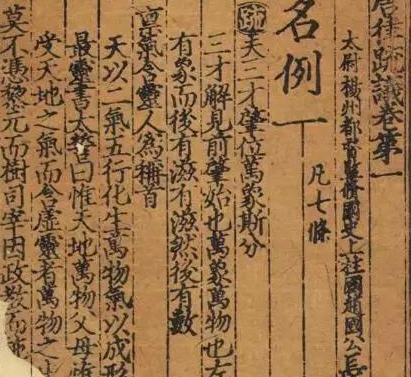 唐律疏議卷第一
太尉揚州都督監修國史上柱國趙國公長
名例一 凡七條
疏夫三才肇位萬象斯分
三才解見前肇始也萬象萬物也左
有象而後有滋有滋然後有數
稟氣含靈人為稱首
天以二氣五行化生萬物氣以成形
最靈書太誓曰惟天地萬物父母惟
受天地之氣而含虛靈者萬物之
莫不馮黎元而樹司宰因政教而施